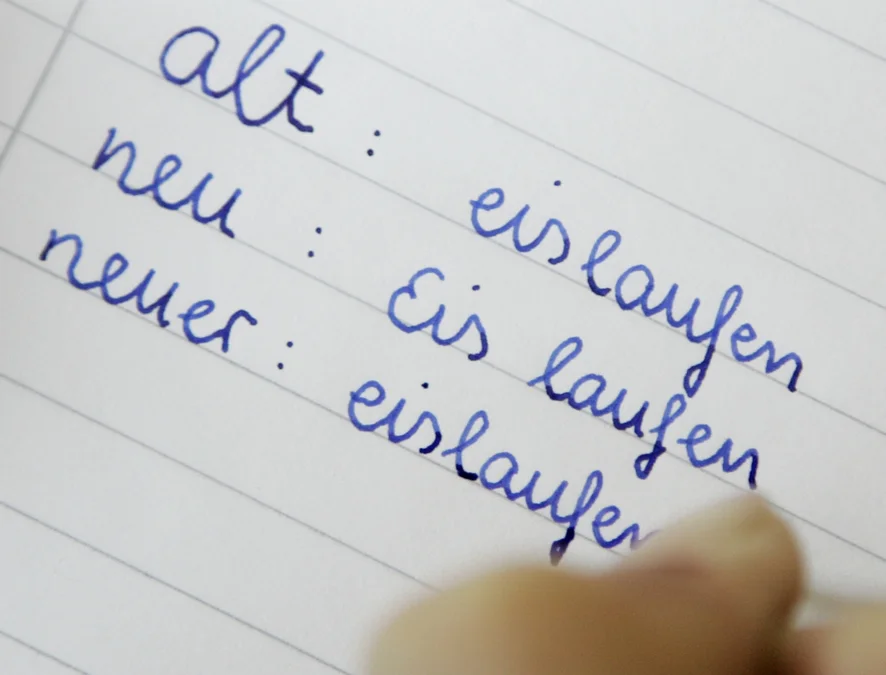 alt : eislaufen
neu : Eis laufen
neuer : eislaufen